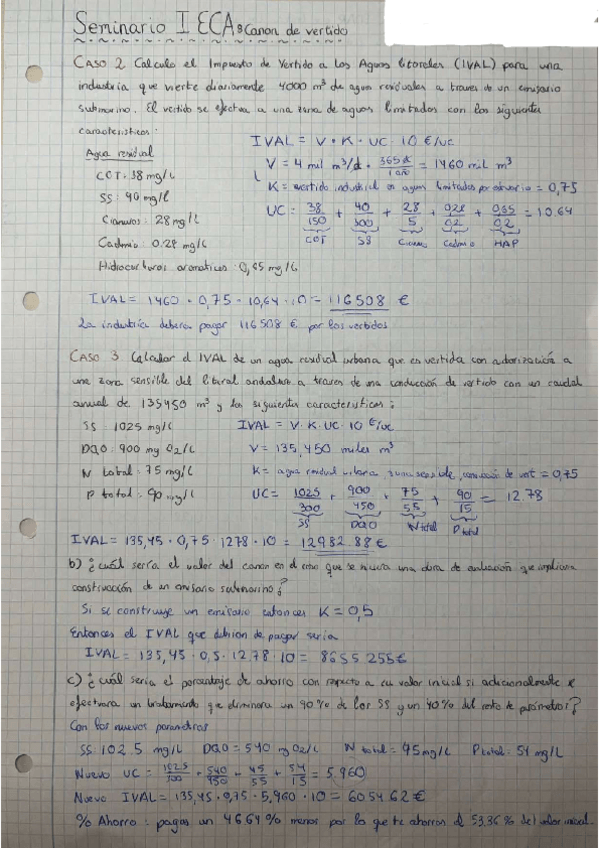 Seminario I ECA: Canon de vertido
CASO 2 Calcula el Impuesto de Vertido a las Aguas litorales (IVAL) para una
industria que vierte diariamente 4000 m³ de agua residuales a traves de un emisario
submarino. El vertido se efectua a una zona de aguas limitadas con las siguientes
caracteristicas:
Agua residual
COT: 38 mg/L
SS: 40 mg/l
Cianuros: 28 mg/L
Cadmio: 0.28 mg/L
Hidrocarburos aromaticos: 0,55 mg/L
IVAL = V · K · UC · 10 €/uc
V = 4 mil m³/d · 365 d / 1 año = 1460 mil m³
K = vertido industrial en aguas limitadas por emisario = 0,75
UC = 38/150 + 40/300 + 28/5 + 0,28/0,2 + 0,55/0,2 = 10.64
COT SS Cianuros Cadmio HAP
IVAL = 1460 · 0,75 · 10,64 · 10 = 116508 €
La industria debera pagar 116508 € por los vertidos
CASO 3 Calcular el IVAL de un agua residual urbana que es vertida con autorización a
una zona sensible del litoral andaluz a traves de una conducción de vertido con un caudal
anual de 135450 m³ y las siguientes caracteristicas:
SS: 1025 mg/L
DQO: 900 mg O2/L
N total: 75 mg/L
P total: 90 mg/L
IVAL = V · K · UC · 10 €/uc
V = 135,450 miles m³
K = agua residual urbana, zona sensible, conducción de vert = 0,75
UC = 1025/300 + 900/450 + 75/55 + 90/15 = 12.78
SS DQO N total P total
IVAL = 135,45 · 0,75 · 1278 · 10 = 12982.88 €
b) ¿cuál sería el valor del canon en el caso que se inicia una obra de evaluación que implicara
construcción de un emisario submarino?
Si se construye un emisario entonces K = 0,5
Entonces el IVAL que debrian de pagar seria
IVAL = 135,45 · 0,5 · 12.78 · 10 = 8655 255€
c) ¿cuál sería el porcentaje de ahorro con respecto a su valor inicial si adicionalmente se
efectuara un tratamiento que eliminara un 90% de los SS y un 40% del resto de parámetros?
Con los nuevos parametros
SS: 102 5 mg/L DQO = 540 mg O2/L N total = 45 mg/L P total: 54 mg/L
Nuevo UC = 102,5/300 + 540/450 + 45/55 + 54/15 = 5.960
Nuevo IVAL = 135,45 · 0,75 · 5,960 · 10 = 6054 62 €
% Ahorro: pagas un 46 64 % menos por lo que te ahorras el 53.36 % del valor inicial